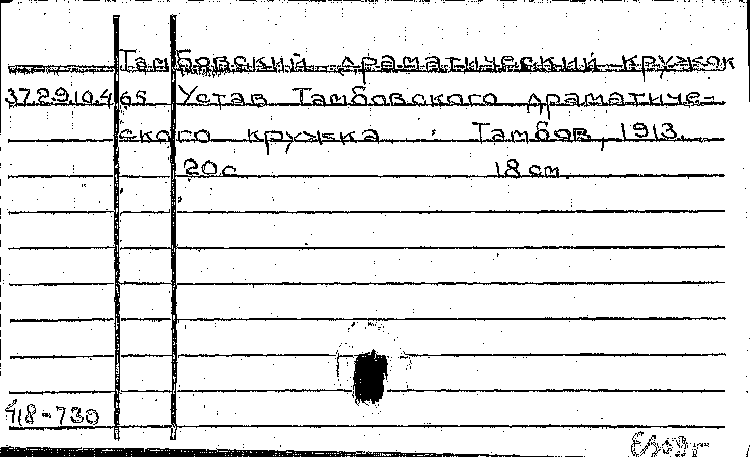 Тамбовский драматический кружок
37.29.10.4.65 Устав Тамбовского драматиче-
ского кружка. Тамбов, 1913.
20с. 18 см.
418-730